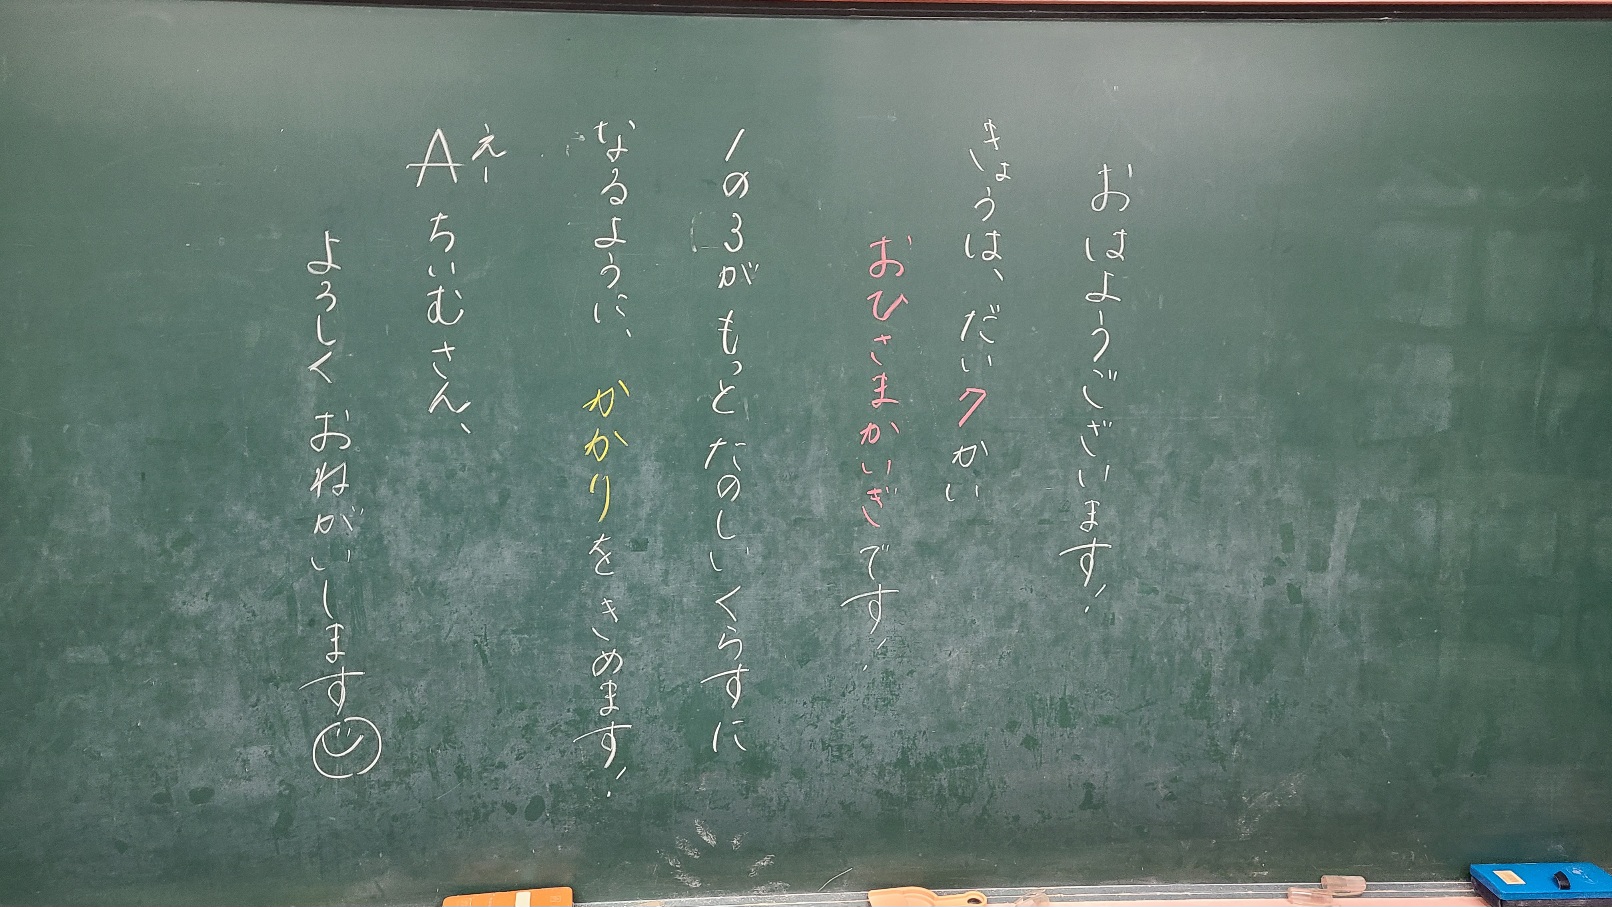 おはようございます!
きょうは、だい7かい
おひさまかいぎです!
1の3がもっとたのしいくらすに
なるように、かかりをきめます!
えー
Aちいむさん、
よろしくおねがいします